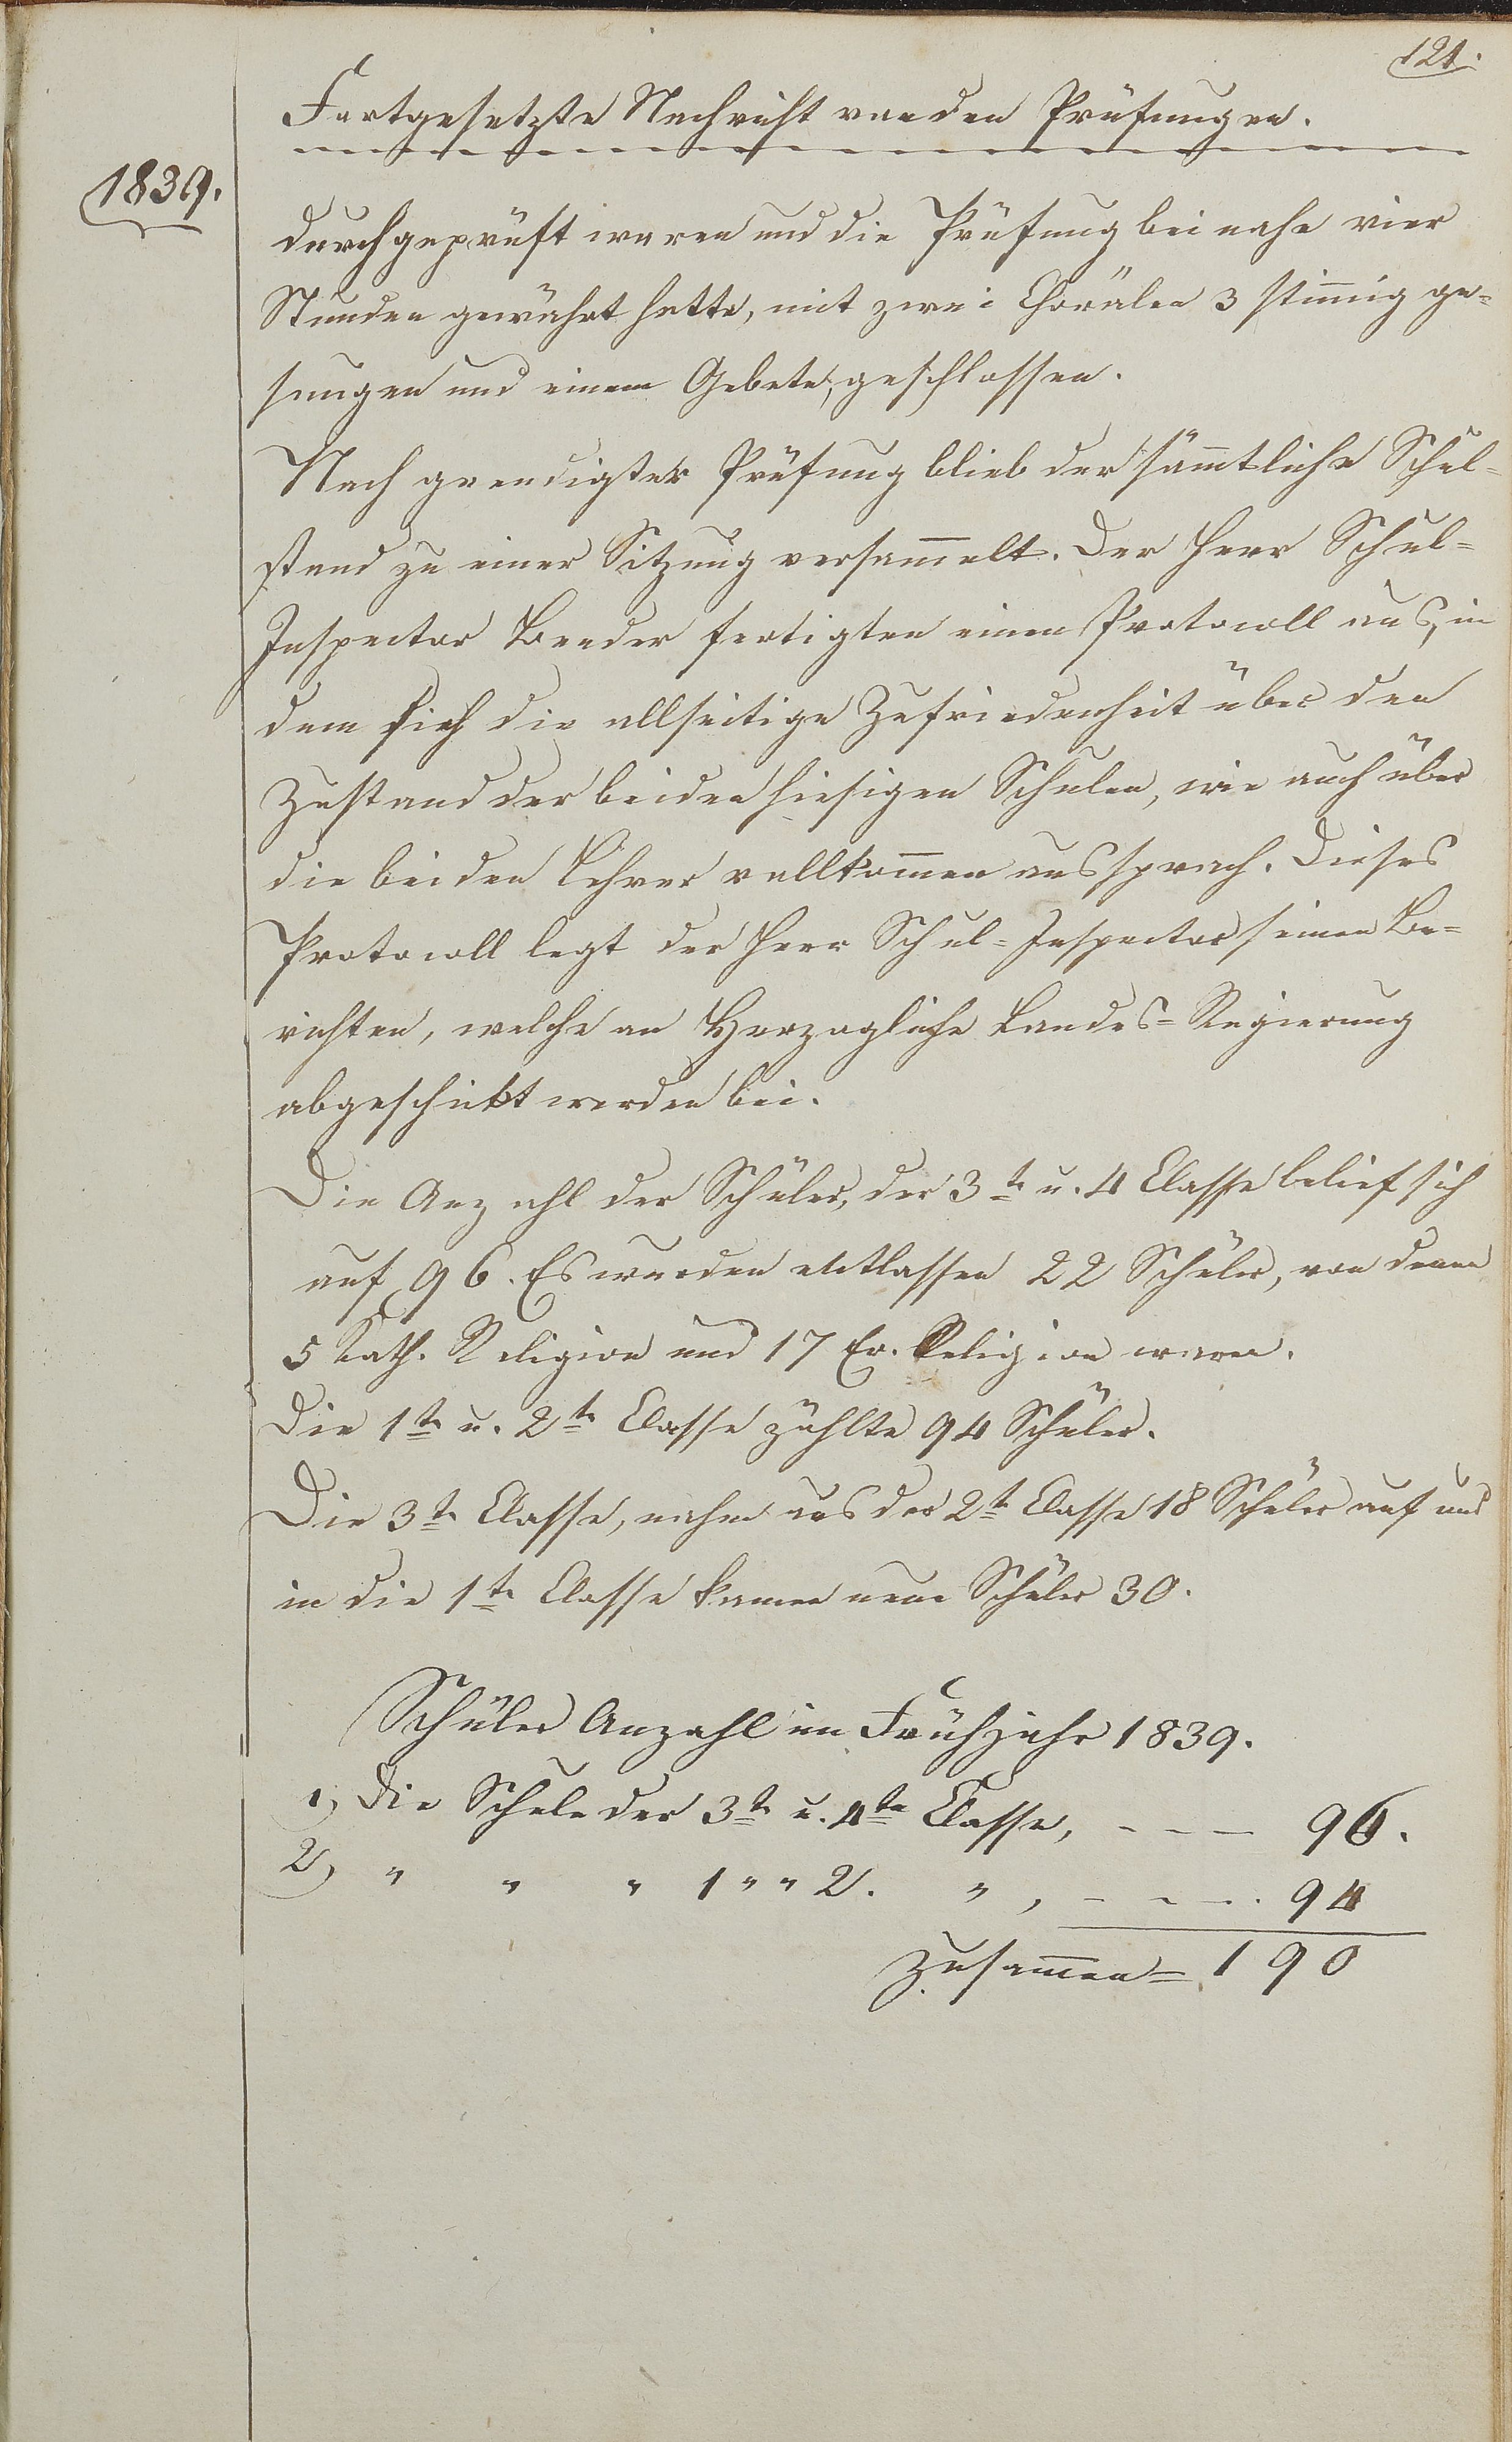 121.
Fortgesetzte Nachricht von den Prüfungen.
1839.
durchgeprüft waren und die Prüfung bei nahe vier
Stunden gewährt hatte, mit zwei Chorälen 3 stim̄ig ge-
sungen und einem Gebete, geschlossen.
Nach geendigter Prüfung blieb der säm̄tliche Schul-
stand zu einer Sitzung versam̄elt. Der Herr Schul-
Inspector Bender fertigten einen Protocoll aus, in
dem sich die allseitige Zufriedenheit über den
Zustand der beiden hiesigen Schulen, wie auch über
die beiden Lehrer vollkom̄en aussprach. Dieses
Protocoll legt der Herr Schul-Inspector seinen Be-
richten, welche an Herzogliche Landes-Regierung
abgeschickt werden bei.
Die Anzahl der Schüler, der 3te u. 4 Classe belief sich
auf 96. Es wurden entlassen 22 Schüler, von denen
5 Kath. Religion und 17 Ev. Religion waren.
Die 1te u. 2te Classe zählte 94 Schüler.
Die 3te Classe, nahm aus der 2te Classe 18 Schüler auf und
in die 1te Classe kamen neue Schüler 30.
Schüler Anzahl im Frühjahr 1839.
1, Die Schule der 3te u. 4te Classe, - - - 96.
2, " " " 1 " " 2. " , - - - . 94
Zusam̄en = 190